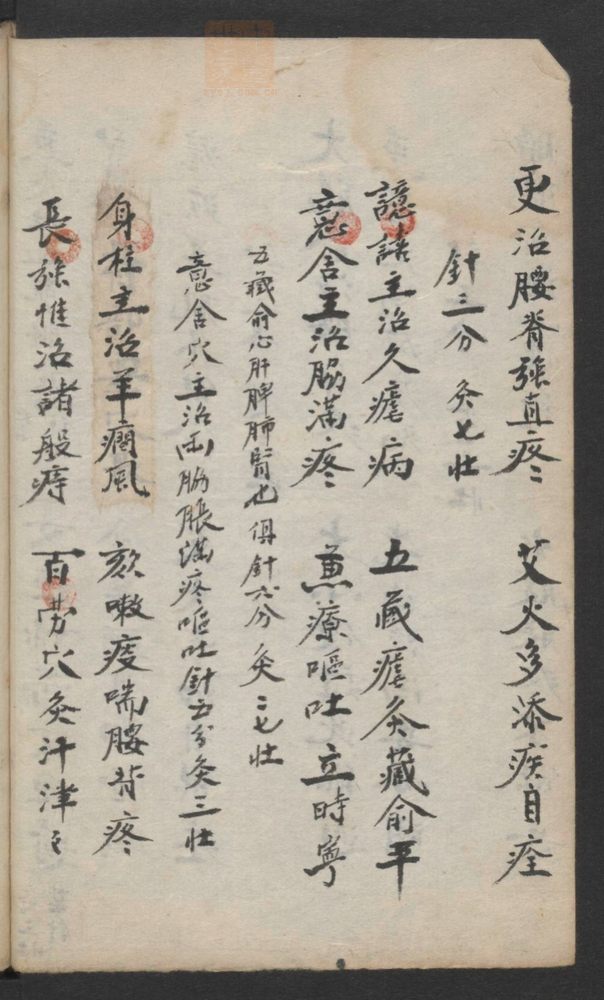 更治腰脊強直疼 艾火多添疾自痊
針三分 灸七壯
譩譆主治久瘧病 五臟瘧灸藏俞平
意舍主治脇滿疼 兼療嘔吐立時寧
五藏俞心肝脾肺腎也俱針六分灸二七壯
意舍穴主治兩脇脹滿疼嘔吐針五分灸三壯
身柱主治羊癇風 欬嗽痰喘腰背疼
長強惟治諸般痔 百勞穴灸汗津〻